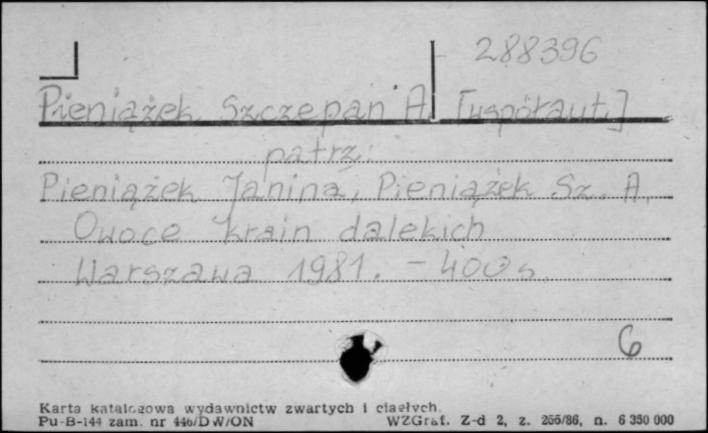 288396
Pieniążek Szczepan A. [współaut.]
patrz:
Pieniążek Janina, Pieniążek Sz. A.
Owoce krain dalekich
Warszawa 1981. - 400 s.
6
Karta katalogowa wydawnictw zwartych i ciągłych
Pu-B-144 zam. nr 446/DW/ON WZGraf. Z-d 2, z. 266/86, n. 6 350 000